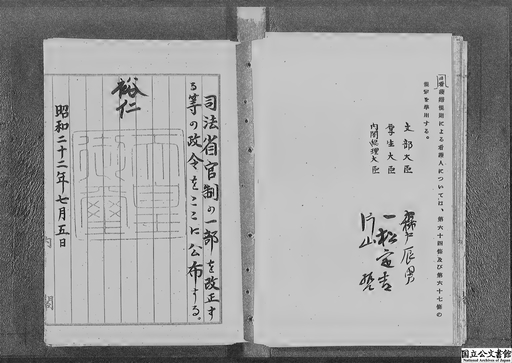 看護婦規則による看護人については、第六十四條及び第六十七條の
規定を準用する。
文部大臣
森戸辰男
厚生大臣
一松定吉
内閣総理大臣
片山哲
司法省官制の一部を改正す
る等の政令をここに公布する。
裕仁
天皇御璽
昭和二十二年七月五日
内閣
国立公文書館
National Archives of Japan